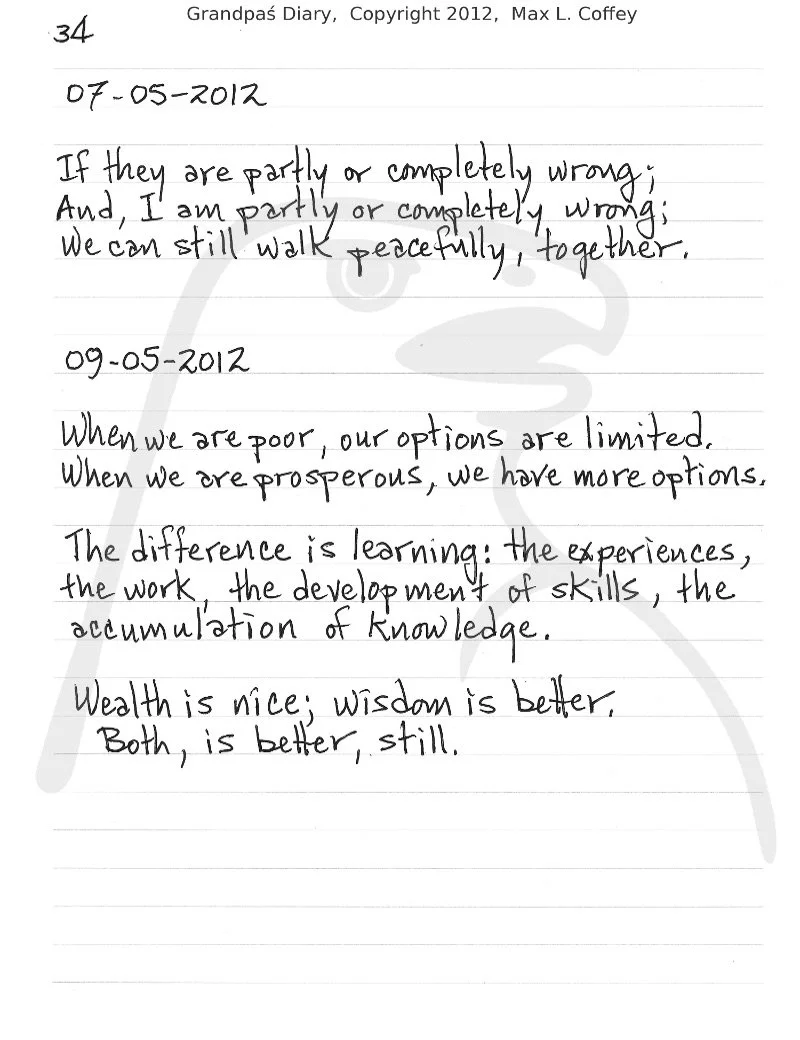 Grandpaś Diary, Copyright 2012, Max L. Coffey
34
07-05-2012
If they are partly or completely wrong;
And, I am partly or completely wrong;
We can still walk peacefully, together.
09-05-2012
When we are poor, our options are limited.
When we are prosperous, we have more options.
The difference is learning: the experiences,
the work, the development of skills, the
accumulation of knowledge.
Wealth is nice; wisdom is better.
Both, is better, still.